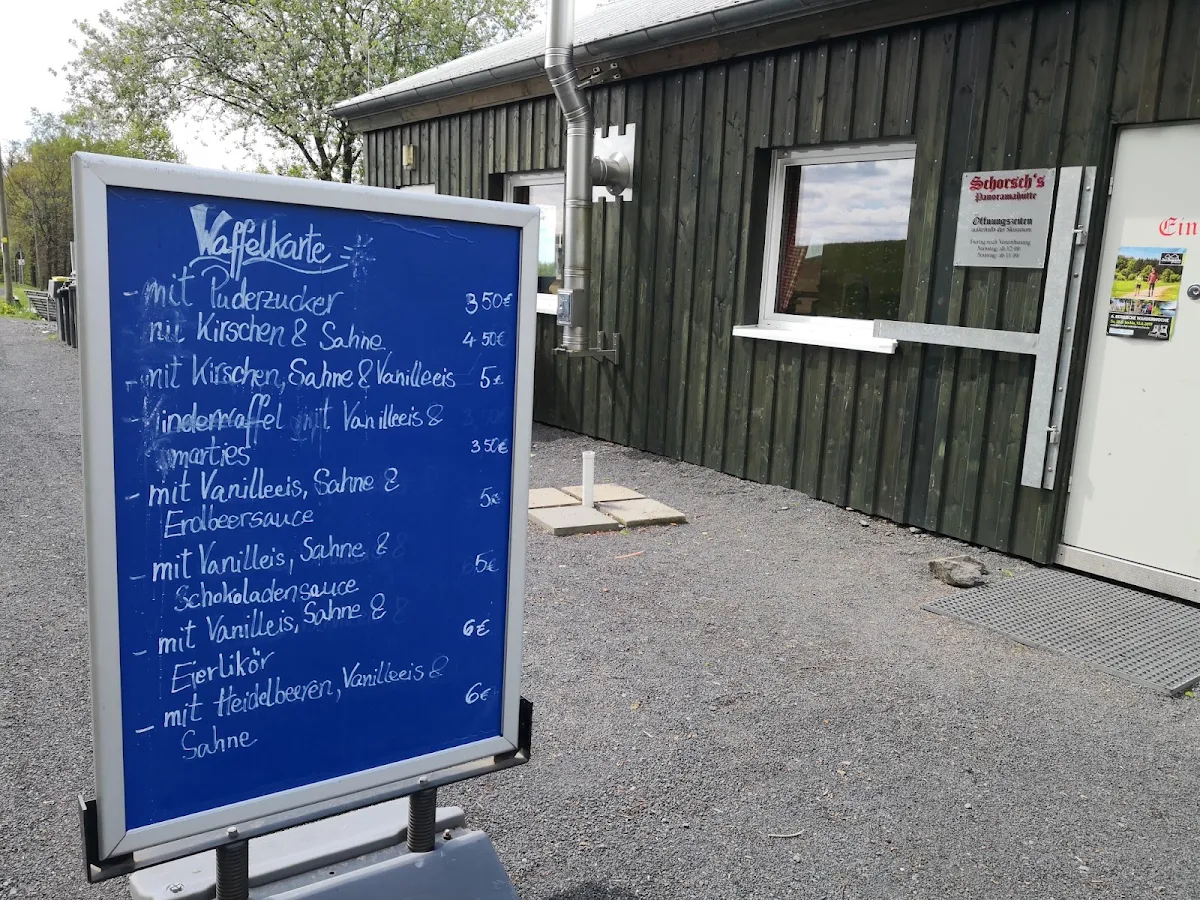 Waffelkarte
- mit Puderzucker 3 50€
mit Kirschen & Sahne 4 50€
- mit Kirschen, Sahne & Vanilleeis 5€
- inderwaffel mit Vanilleeis &
marties 3 50€
- mit Vanilleeis, Sahne & 5€
Erdbeersauce
- mit Vanilleis, Sahne & 5€
Schokoladensauce
- mit Vanilleis, Sahne & 6€
Eierlikör
- mit Heidelbeeren, Vanilleeis & 6€
Sahne
Schorsch's
Panoramahütte
Öffnungszeiten
außerhalb der Skisaison
Freitag nach Vereinbarung
Samstag: ab 12:00
Sonntag: ab 11:00
Ein